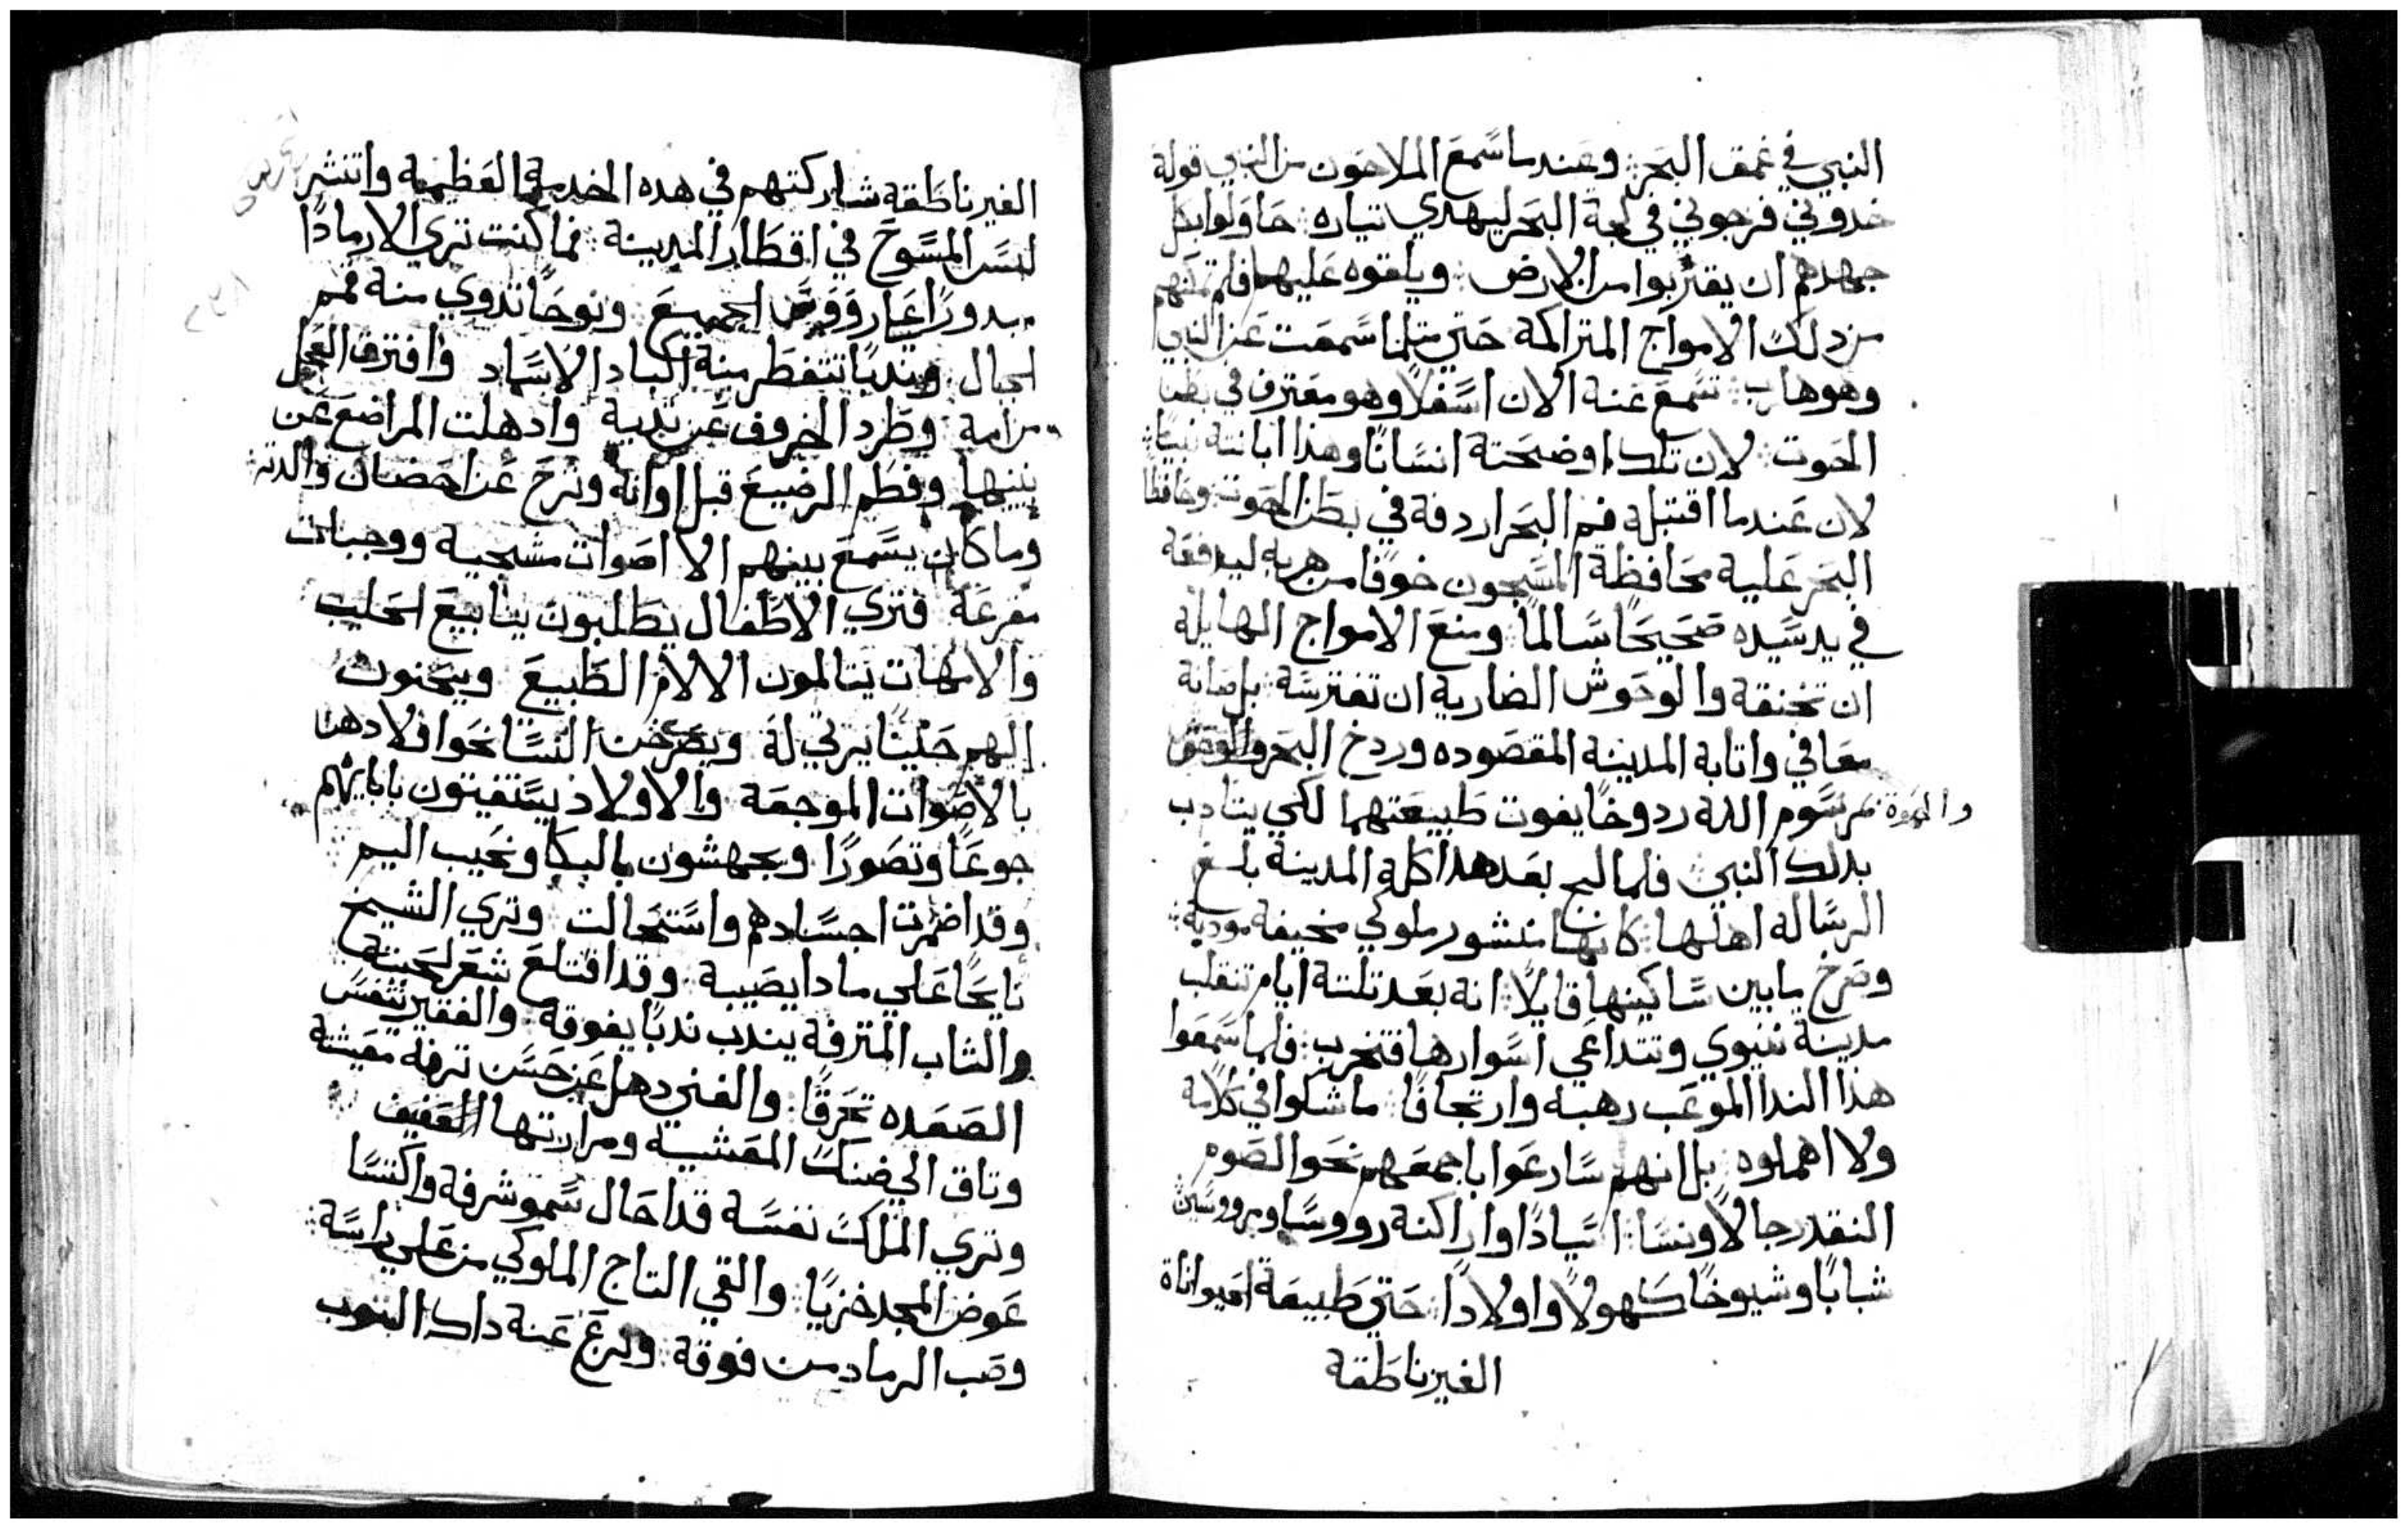 النبي في غمق البحر: وعندما سمع الملاحون من النبي قولة
خدوني فرجوني في لجة البحر ليهدي تياره: حاولوا بكل
جهدهم ان يقتربوا من الارض: ويلقوه عليها فلم تمكنهم
من دلك الامواج المتراكمة حتي متلما سمعت عن النبي
وهو هارب: تسمع عنة الان اسفلا وهو معترف في بطن
الحوت: لان تلك اوضحتة انسانا وهذا ابانتة نبيا:
لان عندما اقتبله فم البحر اردفة في بطن الحوت: وحافظا
البحر علية محافظة المسجون خوفا من هربه ليدفعة
في يد سيده صحيحا سالما: ومنع الامواج الهايلة
ان تخنقة والوحوش الضارية ان تفترسة: بل صانة
معافي واتابة المدينة المقصوده وردخ البحر والوحوش
والحوة نمرسوم الله ردوخا يفوت طبيعتهما لكي يتادب
بدلك النبي: فلما لبج بعد هدا كله المدينة بلغ
الرسالة اهلها: كانها منشور ملوكي مخيفة مودبة:
وصرخ ما بين ساكينها قايلا: انه بعد تلتة ايام تنقلب
مدينة نينوي وتتداعي اسوارها فتخرب: فلما سمعوا
هذا الندا الموعب رهبة وارتجافا: ما شكوا في كلامة
ولا اهملوه: بل انهم سارعوا باجمعهم نحو الصوم
النقد رجالا ونسا: اسيادا واراكنة رووسا ومرووسين
شبابا وشيوخا كهولا واولادا: حتي طبيعة الحيواناة
الغير ناطقة
الغير ناطقة شاركتهم في هده الخدمة العظيمة وانتشر
لبس المسوح في اقطار المدينة: فما كنت تري الا رمادا
الجميع ونوحا تدوي منة قمم
الجبال وندبا تتفطر منة اكباد الاساد وافترق العجل
من امة وطرد الخروف عن تدية وادهلت المراضع عن
بنيها وفطم الرضيع قبل اوانة ونزح عن احضان والدتة:
وما كان يسمع بينهم الا اصوات مشجية ووجبات
مفزعة فتري الاطفال يطلبون ينابيع الحليب
والامهات يتالمون الالام الطبيع ويحنون
اليهم حنينا يرتي لة ويصرخن النسا نحو اولادهن
بالاصوات الموجعة والاولاد يستغيتون بابايهم
جوعا وتصورا ويجهشون بالبكا ونحيب اليم
وقد اضمرت اجسادهم واستحالت وتري الشيخ
نايحا علي ما دا يصيبة وقد اقتلع شعر لحيتة
والشاب المترفة يندب ندبا يفوقة والفقير يتنفس
الصعده تحرقا: والغني دهل عن حسن ترفة معيشتة
وتاق الي ضنك المعشية ومرارتها العفيف
وتري الملك نفسة قد احال سمو شرفة واكتسا
عوض المجد خزيا: والقي التاج الملوكي من علي راسة:
وصب الرماد من فوقة: ونزع عنة داك التوب